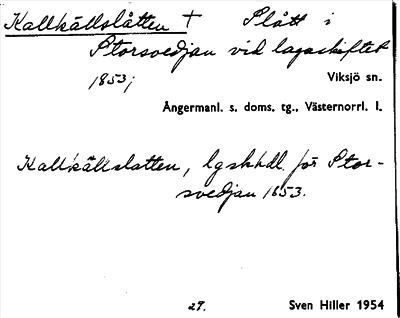 Kallkällslåtten + Slått i
Storsvedjan vid lagaskiftet
1853;
Viksjö sn.
Ångermanl. s. doms. tg., Västernorrl. l.
Kallkällslatten, lgskhdl. för Stor-
svedjan 1853.
27. Sven Hiller 1954